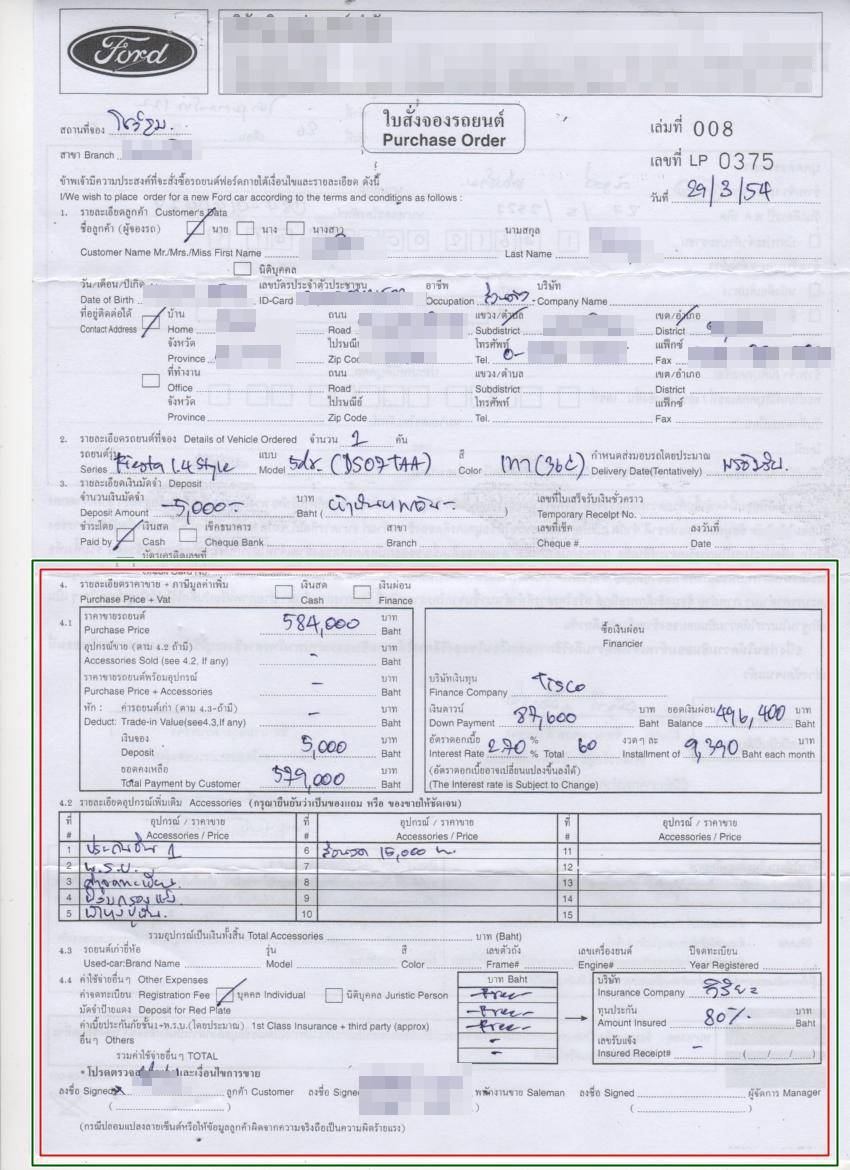 Ford
ใบสั่งจองรถยนต์
Purchase Order
เล่มที่ 008
เลขที่ LP 0375
วันที่ 29/3/54
สถานที่จอง โชว์รูม
สาขา Branch
ข้าพเจ้ามีความประสงค์ที่จะสั่งซื้อรถยนต์ฟอร์ดภายใต้เงื่อนไขและรายละเอียด ดังนี้
I/We wish to place order for a new Ford car according to the terms and conditions as follows :
1. รายละเอียดลูกค้า Customer's Data
ชื่อลูกค้า (ผู้จองรถ) นาย นาง นางสาว นามสกุล
Customer Name Mr./Mrs./Miss First Name Last Name
นิติบุคคล
วัน/เดือน/ปีเกิด เลขบัตรประจำตัวประชาชน อาชีพ บริษัท
Date of Birth ID-Card Occupation ส่วนตัว Company Name
ที่อยู่ติดต่อได้ บ้าน ถนน แขวง/ตำบล เขต/อำเภอ
Contact Address Home Road Subdistrict District
จังหวัด ไปรษณีย์ โทรศัพท์ แฟ็กซ์
Province Zip Code Tel. 0- Fax
ที่ทำงาน ถนน แขวง/ตำบล เขต/อำเภอ
Office Road Subdistrict District
จังหวัด ไปรษณีย์ โทรศัพท์ แฟ็กซ์
Province Zip Code Tel. Fax
2. รายละเอียดรถยนต์ที่จอง Details of Vehicle Ordered จำนวน 1 คัน
รถยนต์รุ่น แบบ สี กำหนดส่งมอบรถโดยประมาณ
Series Fiesta 1.4 Style Model 5dr. (DS07TAA) Color เทา (36C) Delivery Date(Tentatively)
3. รายละเอียดเงินมัดจำ Deposit
จำนวนเงินมัดจำ บาท เลขที่ใบเสร็จรับเงินชั่วคราว
Deposit Amount 5,000.- Baht (ห้าพันบาทถ้วน.-) Temporary Receipt No.
ชำระโดย เงินสด เช็คธนาคาร สาขา เลขที่เช็ค ลงวันที่
Paid by Cash Cheque Bank Branch Cheque # Date
บัตรเครดิตเลขที่
Credit Card No.
4. รายละเอียดราคาขาย + ภาษีมูลค่าเพิ่ม เงินสด เงินผ่อน
Purchase Price + Vat Cash Finance
4.1 ราคาขายรถยนต์ 584,000 บาท
Purchase Price Baht
อุปกรณ์ขาย (ตาม 4.2 ถ้ามี) - บาท
Accessories Sold (see 4.2, If any) Baht
ราคาขายรถยนต์พร้อมอุปกรณ์ - บาท
Purchase Price + Accessories Baht
หัก : ค่ารถยนต์เก่า (ตาม 4.3-ถ้ามี) - บาท
Deduct: Trade-in Value(see4.3,If any) Baht
เงินจอง 5,000 บาท
Deposit Baht
ยอดคงเหลือ 579,000 บาท
Total Payment by Customer Baht
ซื้อเงินผ่อน
Financier
บริษัทเงินทุน TISCO
Finance Company
เงินดาวน์ 87,600 บาท ยอดเงินผ่อน 496,400 บาท
Down Payment Baht Balance Baht
อัตราดอกเบี้ย % งวดๆ ละ บาท
Interest Rate 2.70 % Total 60 Installment of 9,390 Baht each month
(อัตราดอกเบี้ยอาจเปลี่ยนแปลงขึ้นลงได้)
(The Interest rate is Subject to Change)
4.2 รายละเอียดอุปกรณ์เพิ่มเติม Accessories (กรุณายืนยันว่าเป็นของแถม หรือ ของขายให้ชัดเจน)
ที่ อุปกรณ์ / ราคาขาย ที่ อุปกรณ์ / ราคาขาย ที่ อุปกรณ์ / ราคาขาย
# Accessories / Price # Accessories / Price # Accessories / Price
1 ประกันชั้น 1 6 ส่วนลด 15,000 บ. 11
2 พ.ร.บ. 7 12
3 ค่าจดทะเบียน 8 13
4 ฟิล์มกรองแสง 9 14
5 10 15
รวมอุปกรณ์เป็นเงินทั้งสิ้น Total Accessories บาท (Baht)
4.3 รถยนต์เก่ายี่ห้อ รุ่น สี เลขตัวถัง เลขเครื่องยนต์ ปีจดทะเบียน
Used-car:Brand Name Model Color Frame# Engine# Year Registered
4.4 ค่าใช้จ่ายอื่นๆ Other Expenses บาท Baht
ค่าจดทะเบียน Registration Fee บุคคล Individual นิติบุคคล Juristic Person Free
มัดจำป้ายแดง Deposit for Red Plate Free
ค่าเบี้ยประกันภัยชั้น1+พ.ร.บ.(โดยประมาณ) 1st Class Insurance + third party (approx) Free
อื่นๆ Others -
รวมค่าใช้จ่ายอื่นๆ TOTAL -
บริษัท
Insurance Company วิริยะ
ทุนประกัน บาท
Amount Insured 80% Baht
เลขรับแจ้ง
Insured Receipt# - ( / / )
* โปรดตรวจ และเงื่อนไขการขาย
ลงชื่อ Signed ลูกค้า Customer ลงชื่อ Signed พนักงานขาย Saleman ลงชื่อ Signed ผู้จัดการ Manager
(กรณีปลอมแปลงลายเซ็นต์หรือให้ข้อมูลลูกค้าผิดจากความจริงถือเป็นความผิดร้ายแรง)